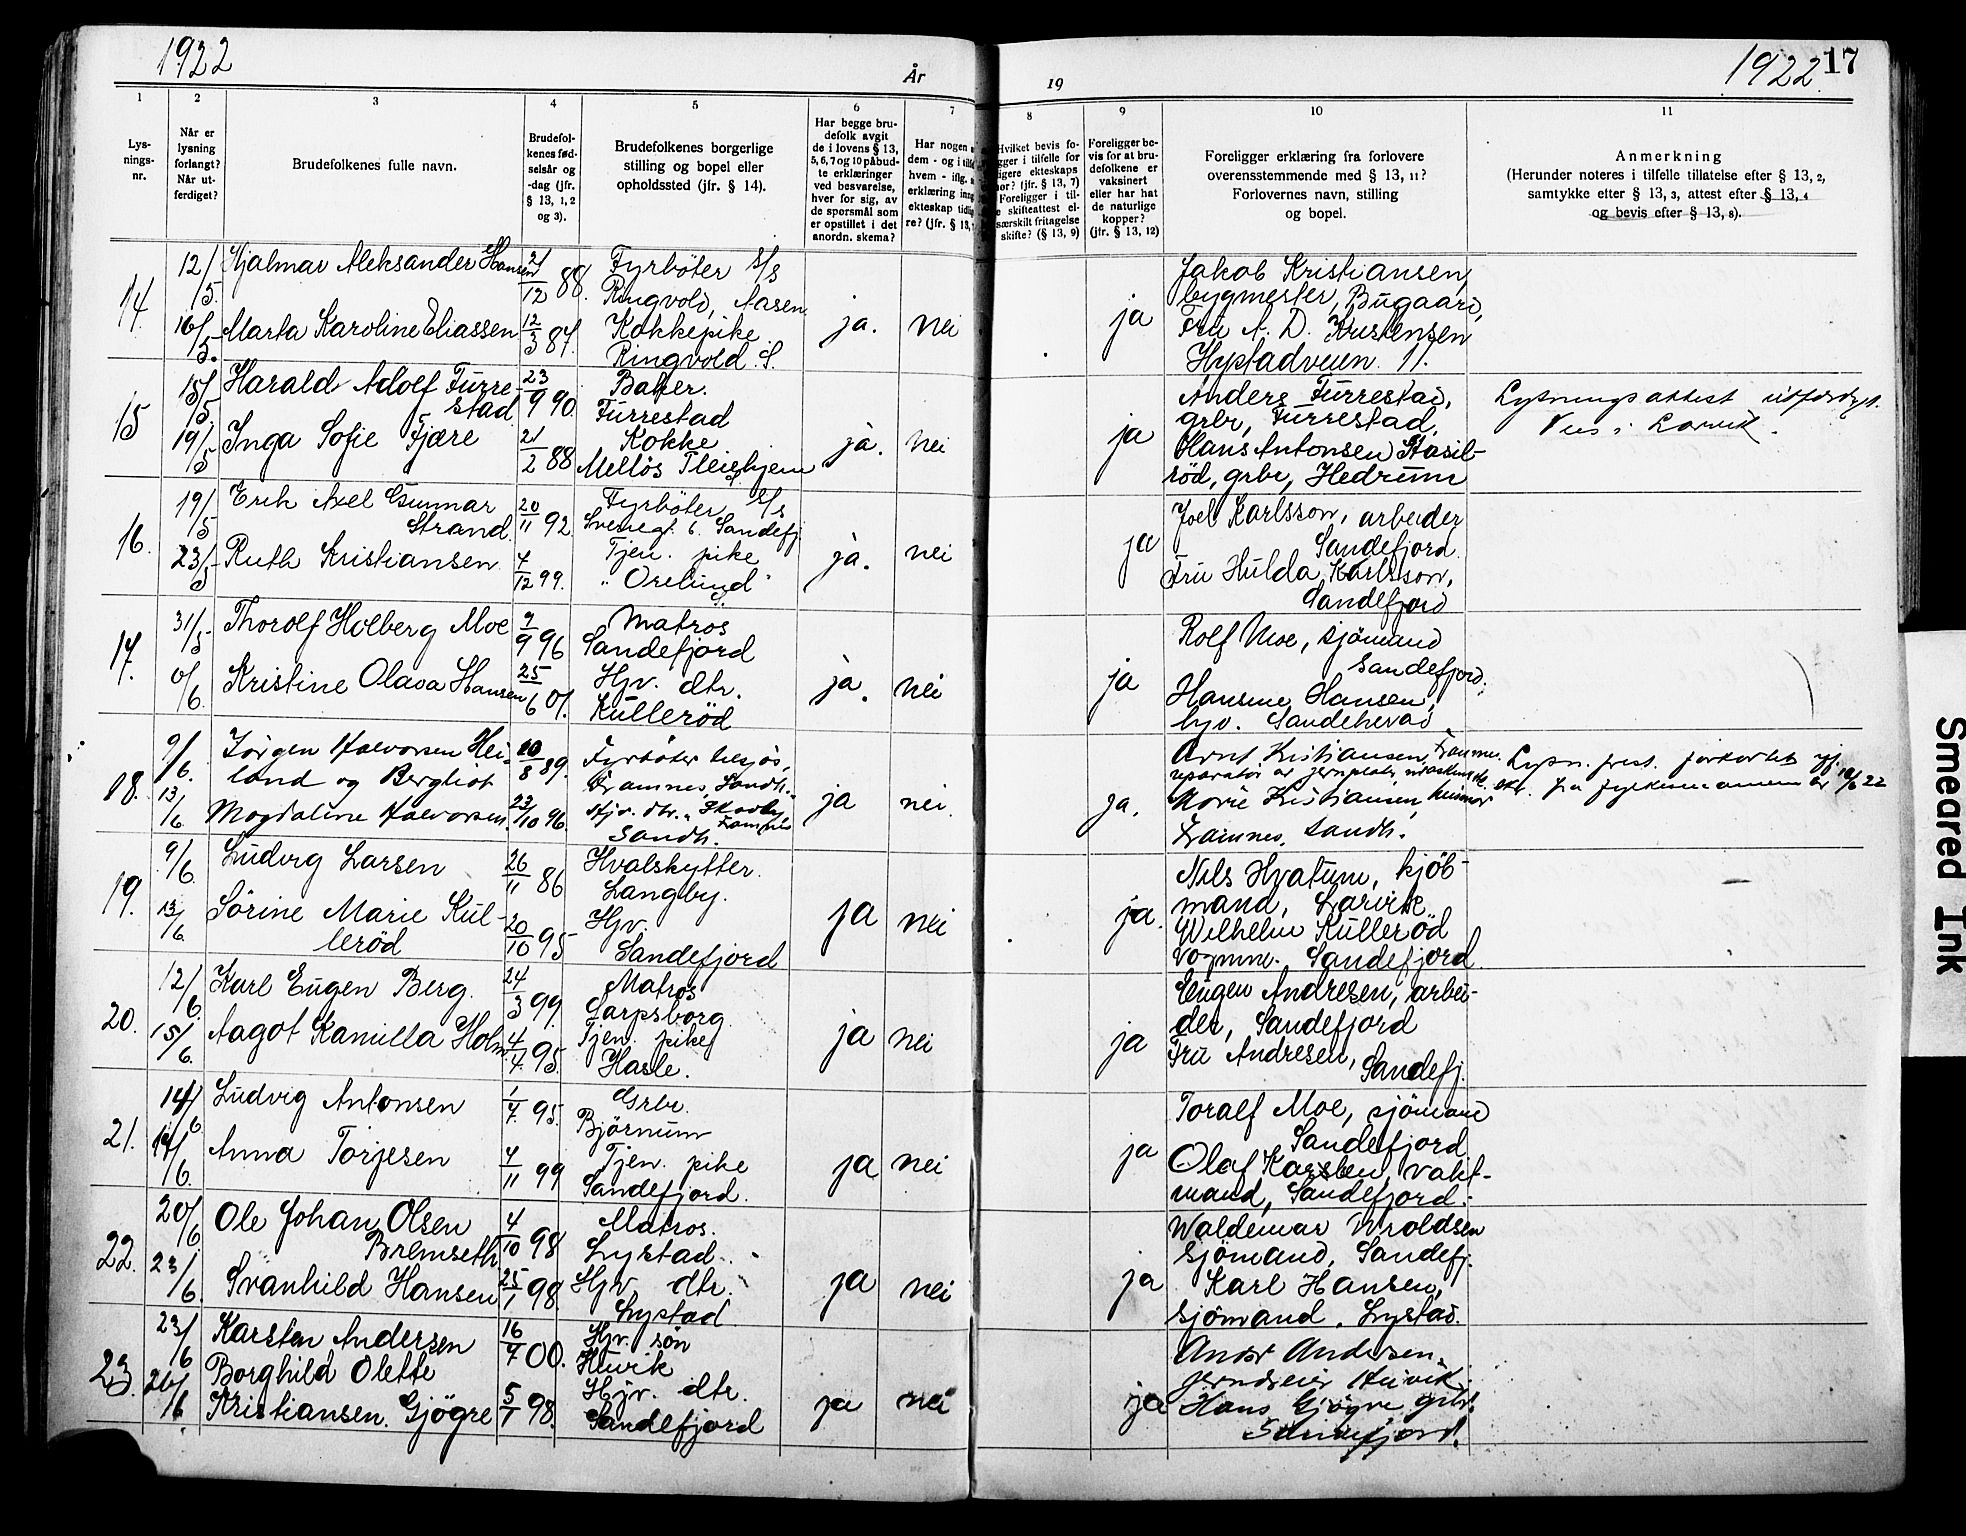 1922
År
19
1922
17
1
2
3
4
5
6
7
8
9
10
11
Lys-
nings-
nr.
Når er
lysning
forlangt?
Når ut-
ferdiget?
Brudefolkenes fulle navn.
Brudefol-
kenes fød-
selsår og
-dag (jfr.
§ 13, 1, 2
og 3).
Brudefolkenes borgerlige
stilling og bopel eller
opholdssted (jfr. § 14).
Har begge bru-
defolk avgit
de i lovens § 13,
5, 6, 7 og 10 påbud-
te erklæringer
ved besvarelse,
hver for sig, av
de spørsmål som
er opstillet i det
anordn. skema?
Har nogen
dem - og i
hvem - iflg.
erklæring
ekteskap
re? (jfr. § 13,
Hvilket bevis fo-
gger i tilfelle for
igere ekteskaps
hør? (jfr. § 13, 7)
Foreligger i til-
e skifteattest el-
særskilt fritagelse
skifte? (§ 13, 9)
Foreligger be-
vis for at bru-
defolkene er
vaksinert
eller har hat
de naturlige
kopper?
(jfr. § 13, 12)
Foreligger erklæring fra forlovere
overensstemmende med § 13, 11?
Forlovernes navn, stilling
og bopel.
Anmerkning
(Herunder noteres i tilfelle tillatelse efter § 13, 2,
samtykke efter § 13, 3, attest efter § 13, 4
og bevis efter § 13, 8).
14.
12/5.
16/5.
Hjalmar Aleksander Hansen
Marta Karoline Eliassen
21/12 88.
12/3 87.
Fyrböter S/s
Ringvold, Aasen
Kokkepike
Ringvold. S.
ja.
nei
ja
Jakob Kristiansen,
bygmester, Bugaard,
Fru A. D. Kristensen
Hystadveien 11.
15
15/5
19/5
Harald Adolf Furre-
stad
Inga Sofie Fjære
23/9 90.
21/2 88
Baker.
Furrestad
Kokke
Mellös Pleiehjem
ja.
nei
ja
Anders Furrestad,
grbr, Furrestad,
Hans Antonsen
röd, grbr, Hedrum
Lysningsattest utferdiget.
Vies i Larvik.
16.
19/5
23/5
Erik Axel Gunnar
Strand.
Ruth Kristiansen
20/11 92.
4/12 99.
Fyrböter S/s
6. Sandefj.
Tjen. pike
"Orelund"
S.
ja.
nei
ja
Joel Karlsson, arbeider
Sandefjord.
Fru Hulda Karlsson,
Sandefjord
17.
31/5
6/6
Thorolf Holberg Moe
Kristine Olava Hansen
9/9 96
25/6 01.
Matros
Sandefjord
Hjv. dtr.
Kullerød
ja.
nei
ja
Rolf Moe, sjömand
Sandefjord,
Hansine Hansen,
hjv. Sandeherad
18.
9/6.
13/6
Jörgen Halvorsen Hei-
land og Bergliot
Magdalene Halvorsen.
8 89.
23/10 96.
Fyrböter tilsjös,
Framnes, Sandh.
Hjv. dtr. Skovly
Framnes
Sandh.
ja
nei.
ja.
Arnt Kristiansen, Framnes
Marie Kristiansen, husmor
Framnes, Sandh.
Lysn. frist. forkortet ifl.
skr. fra fylkesmannen av 10/6 22
19.
9/6.
13/6.
Ludvig Larsen
Sörine Marie Kul-
leröd
26/11 86
20/10 95
Hvalskytter.
Langby.
Hjv.
Sandefjord
ja
nei
ja.
Nils Hvatum, kjöb-
mand, Larvik
Wilhelm Kulleröd
vognm. Sandefjord.
20.
12/6.
15/6.
Karl Eugen Berg.
Aagot Kamilla Holm
24/3 99.
4/7. 95.
Matros
Sarpsborg.
Tjen. pike
Hasle.
ja
nei
ja
Eugen Andresen, arbei-
der, Sandefjord
Fru Andresen,
Sandefj.
21.
14/6
17/6.
Ludvig Antonsen
Anna Torjesen
1/7. 95.
4/11 99
Grbr.
Björnum
Tjen. pike
Sandefjord.
ja
nei
ja
Toralf Moe, sjömand
Sandefjord
Olaf Karsten, vakt-
mand, Sandefjord.
22.
20/6
23/6.
Ole Johan Olsen
Bremseth
Svanhild Hansen
4/10 98
25/1 98.
Matros.
Lystad.
Hjv. dtr.
Lystad.
ja
nei
ja
Waldemar Uroldsen
sjömand, Sandefj.
Karl Hansen,
sjömand, Lystad.
23.
23/6
26/6
Karsten Andersen
Borghild Olette
Kristiansen. Gjögre
16/7 00.
5/1 98.
Hjv. sön
Huvik
Hjv. dtr.
Sandefjord
ja
nei
ja
Andr Andersen.
Huvik.
Hans Gjögre
Sandefjord.
Smeared Ink